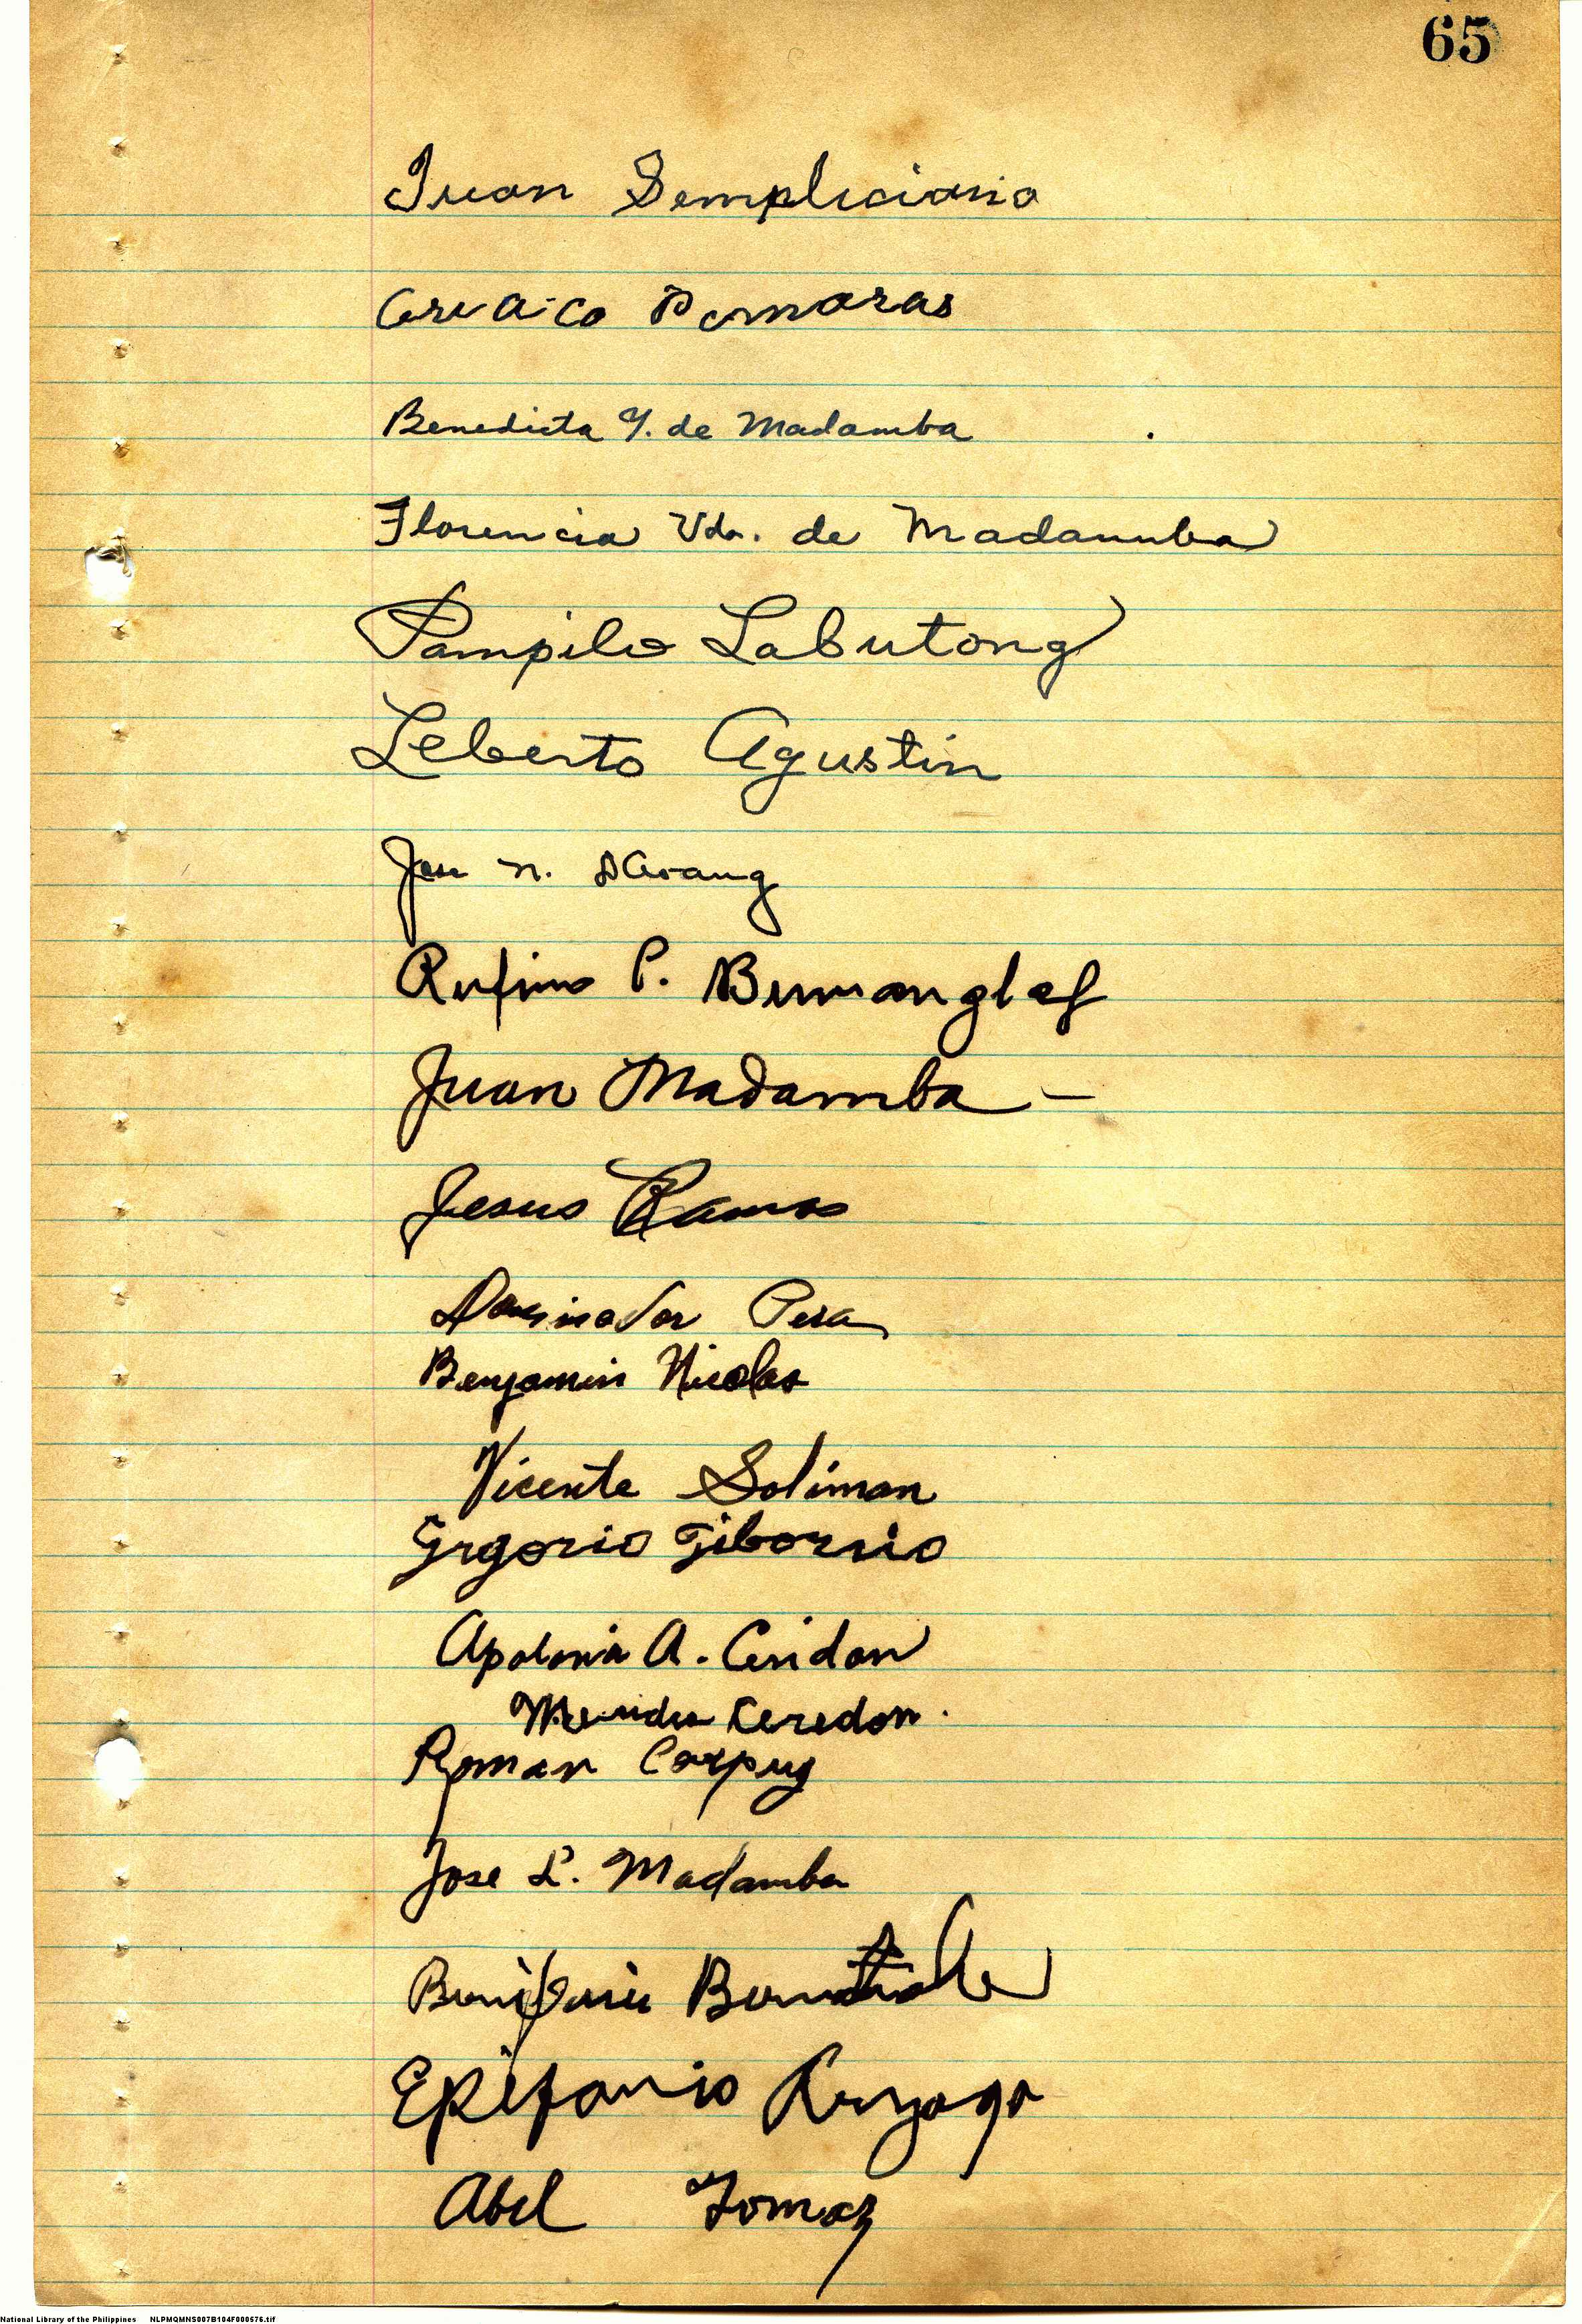 65
Juan Sempliciano
Benedicta Y. de Madamba
Florencia Vda. de Madamba
Pampilo Labutong
Leberto Agustin
n.
Rufino P. Bumanglag
Juan Madamba -
Jesus Ramos
Dominador Pera
Benjamin Nicolas
Vicente Soliman
Grgorio Tibornio
Apolonia A. Ceridon
Keredon.
Roman Corpuz
Jose L. Madamba
Bonifacio
Epifanio
Abel Tomaz
National Library of the Philippines NLPMQMNS007B104F000576.tif